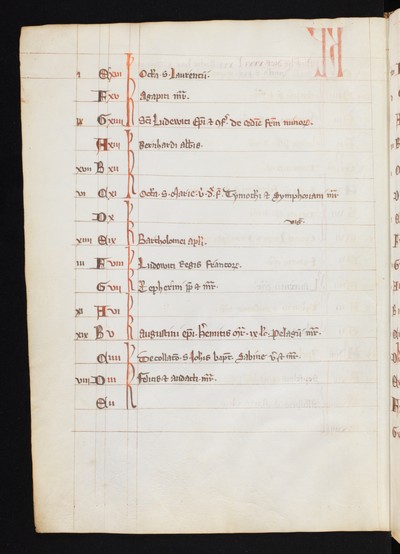 i E xvi Oct. s. Laurentii.
F xv Agapiti mr.
ix G xiiii Sci Ludewici epi et cf. de ordie frm minor.
A xiii Bernhardi abbis
xvii B xii
vi C xi Oct. s. Marie v. Tymothi et Symphoriani mr
D x vig.
xiiii E ix Bartholomei apli.
iii F viii Ludowici regis Francor.
G vii Zepherini pp et mr.
xi A vi
xix B v Augustini epi. Hermetis mr. ix lc. Pelagii mr.
C iiii Decollaco s Johis bapt. Sabine v et mr.
viii D iii Felicis et audacti mr.
E ii